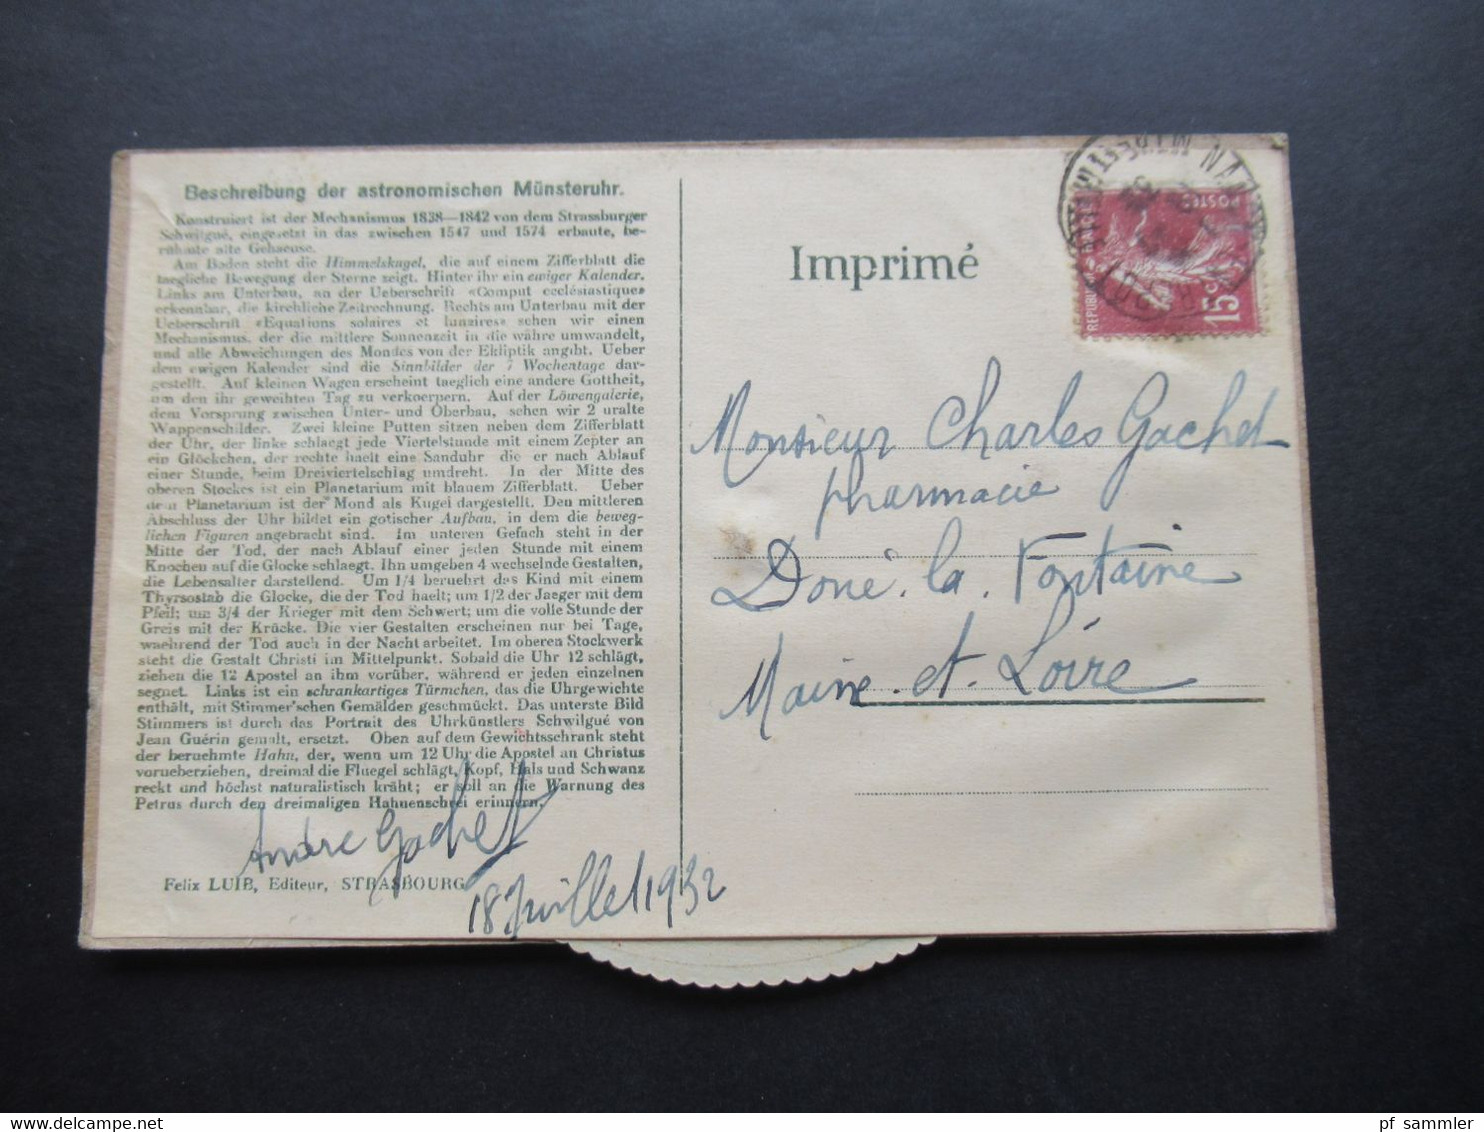 Beschreibung der astronomischen Münsteruhr.
Konstruiert ist der Mechanismus 1838—1842 von dem Strassburger
Schwilgué, eingesetzt in das zwischen 1547 und 1574 erbaute, be-
rühmte alte Gehaeuse.
Am Boden steht die Himmelskugel, die auf einem Zifferblatt die
taegliche Bewegung der Sterne zeigt. Hinter ihr ein ewiger Kalender.
Links am Unterbau, an der Ueberschrift «Comput ecclésiastique»
erkennbar, die kirchliche Zeitrechnung. Rechts am Unterbau mit der
Ueberschrift «Equations solaires et lunaires» sehen wir einen
Mechanismus, der die mittlere Sonnenzeit in die währe umwandelt,
und alle Abweichungen des Mondes von der Ekliptik angibt. Ueber
dem ewigen Kalender sind die Sinnbilder der 7 Wochentage dar-
gestellt. Auf kleinen Wagen erscheint taeglich eine andere Gottheit,
um den ihr geweihten Tag zu verkoerpern. Auf der Löwengalerie,
dem Vorsprung zwischen Unter- und Oberbau, sehen wir 2 uralte
Wappenschilder. Zwei kleine Putten sitzen neben dem Zifferblatt
der Uhr, der linke schlaegt jede Viertelstunde mit einem Zepter an
ein Glöckchen, der rechte haelt eine Sanduhr die er nach Ablauf
einer Stunde, beim Dreiviertelschlag umdreht. In der Mitte des
oberen Stockes ist ein Planetarium mit blauem Zifferblatt. Ueber
dem Planetarium ist der Mond als Kugel dargestellt. Den mittleren
Abschluss der Uhr bildet ein gotischer Aufbau, in dem die beweg-
lichen Figuren angebracht sind. Im unteren Gefach steht in der
Mitte der Tod, der nach Ablauf einer jeden Stunde mit einem
Knochen auf die Glocke schlaegt. Ihn umgeben 4 wechselnde Gestalten,
die Lebensalter darstellend. Um 1/4 beruehrt das Kind mit einem
Thyrsostab die Glocke, die der Tod haelt; um 1/2 der Jaeger mit dem
Pfeil; um 3/4 der Krieger mit dem Schwert; um die volle Stunde der
Greis mit der Krücke. Die vier Gestalten erscheinen nur bei Tage,
waehrend der Tod auch in der Nacht arbeitet. Im oberen Stockwerk
steht die Gestalt Christi im Mittelpunkt. Sobald die Uhr 12 schlägt,
ziehen die 12 Apostel an ihm vorüber, während er jeden einzelnen
segnet. Links ist ein schrankartiges Türmchen, das die Uhrgewichte
enthält, mit Stimmer'schen Gemälden geschmückt. Das unterste Bild
Stimmers ist durch das Portrait des Uhrkünstlers Schwilgué von
Jean Guérin gemalt, ersetzt. Oben auf dem Gewichtsschrank steht
der beruehmte Hahn, der, wenn um 12 Uhr die Apostel an Christus
vorueberziehen, dreimal die Fluegel schlägt, Kopf, Hals und Schwanz
reckt und höchst naturalistisch kräht; er soll an die Warnung des
Petrus durch den dreimaligen Hahnenschrei erinnern.
André Gachet
Felix LUIB, Editeur, STRASBOURG
18 Juillet 1932
Imprimé
REPUBLIQUE
POSTES
15c
Monsieur Charles Gachet
pharmacie
Doué. la. Fontaine
Maine. et. Loire
pf_sammler
www.delcampe.net